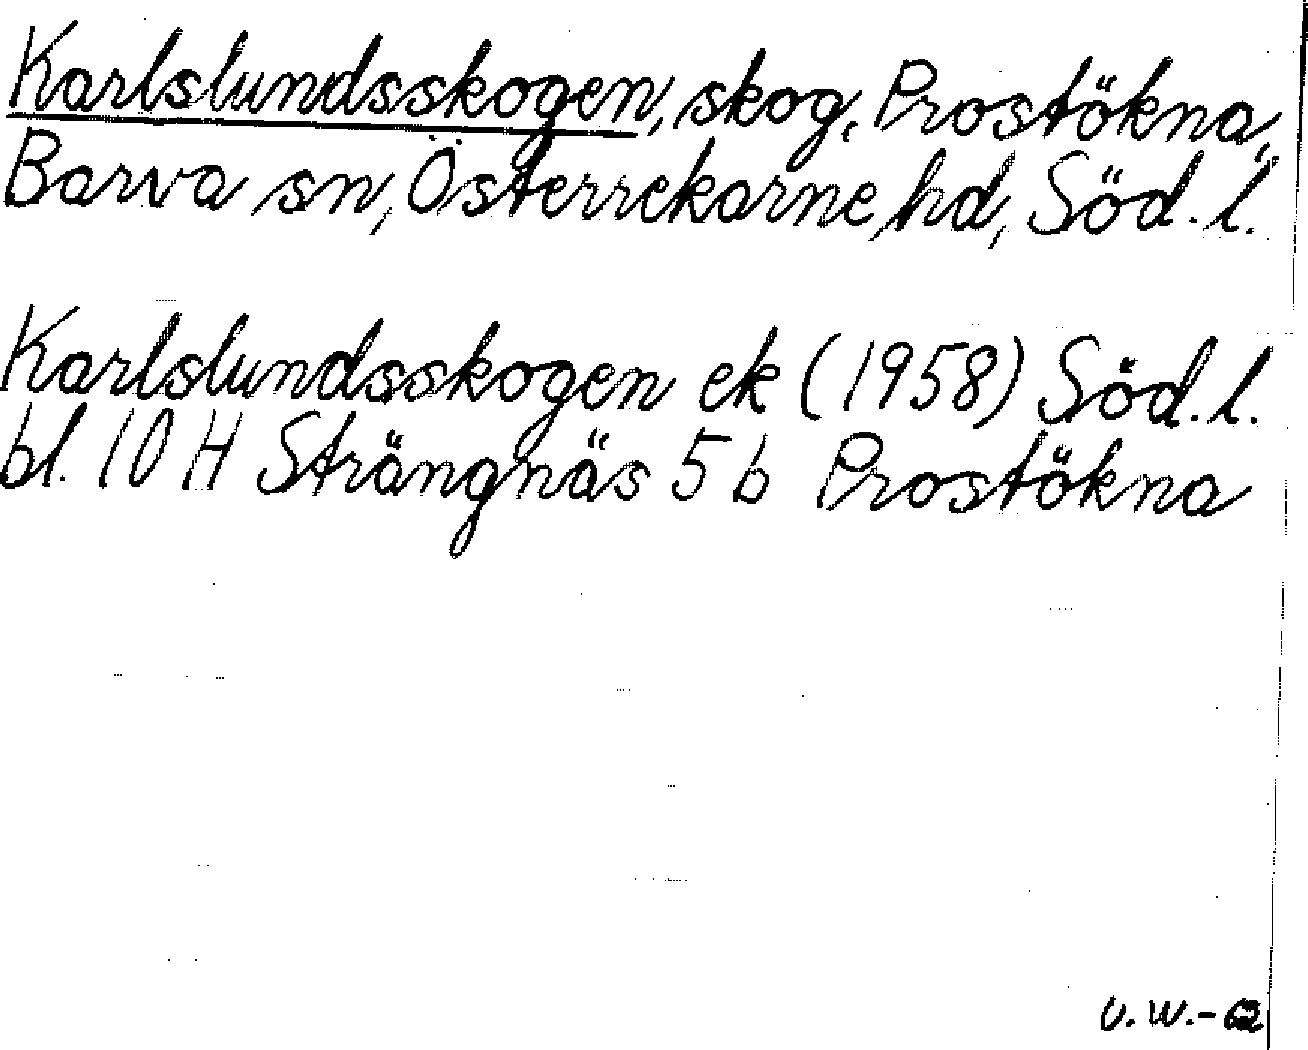 Karlslundsskogen, skog, Prostökna,
Barva sn, Österrekarne hd, Söd. l.
Karlslundsskogen ek (1958) Söd. l.
bl. 10 H Strängnäs 5 b Prostökna
U. W. - 62